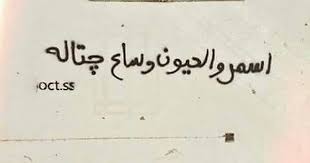 اسمر والعيون وساع چتاله
oct.ss